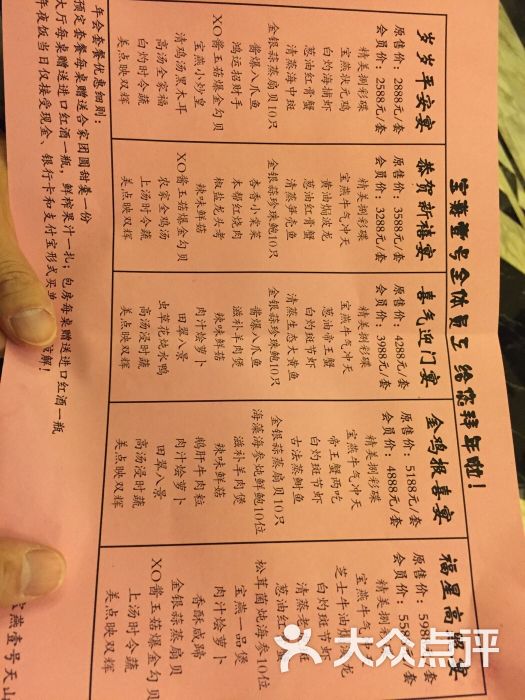 宝燕壹号全体员工 给您拜年啦！
岁岁平安宴
原售价：2888元/套
会员价：2588元/套
精美捌彩碟
宝燕状元鸡
白灼海捕虾
葱油红骨蟹
清蒸海中斑
金银蒜蒸扇贝10只
酱爆八爪鱼
鸿运招财手
XO酱玉菇爆金勾贝
宝燕小炒皇
清鸡汤黑木耳
高汤全家福
白灼时令蔬
美点映双辉
恭贺新禧宴
原售价：3588元/套
会员价：3288元/套
精美捌彩碟
宝燕牛气冲天
黄油焗波龙
葱油红骨蟹
清蒸笋壳鱼
金银蒜珍珠鲍10只
杏香小棠菜
本帮红烧肉
椒盐龙头考
辣味鲜菇
XO酱玉菇爆金勾贝
农家全鸡汤
上汤时令蔬
美点映双辉
喜气迎门宴
原售价：4288元/套
会员价：3988元/套
精美捌彩碟
宝燕牛气冲天
葱油帝王蟹
白灼斑节虾
清蒸生态大黄鱼
金银蒜珍珠鲍10只
酱爆八爪鱼
滋补羊肉煲
辣味鲜菇
肉汁烩萝卜
田翠八景
虫草花炖水鸭
高汤浸时蔬
美点映双辉
金鸡报喜宴
原售价：5188元/套
会员价：4888元/套
精美捌彩碟
宝燕牛气冲天
帝王蟹两吃
白灼斑节虾
古法蒸鲥鱼
金银蒜蒸扇贝10只
海藻海参炖鲜鲍10位
滋补羊肉煲
辣味鲜菇
鹅肝牛肉粒
肉汁烩萝卜
田翠八景
高汤浸时蔬
美点映双辉
福星高
宴
原售价：598
会员价：558
精美捌
宝燕牛气
芝士牛油焗
白灼斑节虾
清蒸老
斑
葱油红
松茸菌炖海参10位
宝燕一品煲
肉汁烩萝卜
香酥咸蹄
金银蒜蒸扇贝
XO酱玉菇爆金勾贝
上汤时令蔬
美点映双辉
年会套餐优惠细则：
预定套餐每桌赠送合家团圆甜羹一份
大厅每桌赠送进口红酒一瓶，鲜榨果汁一扎；包房每桌赠送进口红酒一瓶
年夜饭当日仅接受现金、银行卡和支付宝形式买单
谅解！
宝燕壹号天山
大众点评